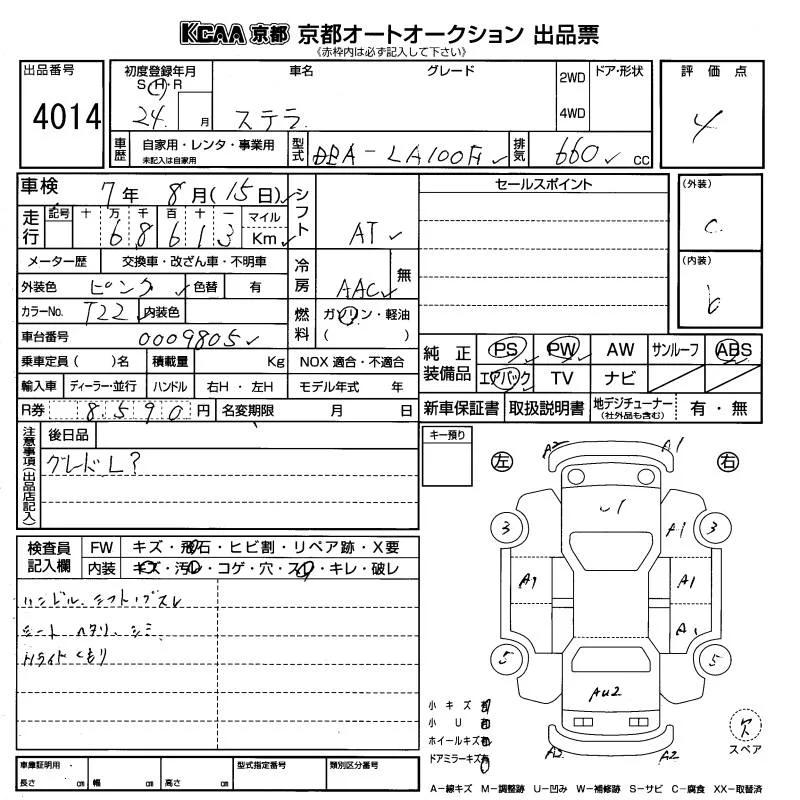 KCAA 京都 京都オートオークション 出品票
《赤枠内は必ず記入して下さい》
出品番号
4014
初度登録年月
S・H・R
24 月
車名
ステラ
グレード
2WD
4WD
ドア・形状
評価点
4
車歴
自家用・レンタ・事業用
未記入は自家用
型式
DBA-LA100F
排気
660 cc
車検
7年 8月(15日)
走行
記号 十 万 千 百 十 一
6 8 6 1 3
マイル
Km
シフト
AT
セールスポイント
(外装)
C
メーター歴 交換車・改ざん車・不明車
冷房
AAC
無
(内装)
b
外装色 ピンク 色替 有
カラーNo. T22 内装色
燃料
ガソリン・軽油
( )
車台番号 0009805
乗車定員( )名 積載量 Kg NOX 適合・不適合
輸入車 ディーラー・並行 ハンドル 右H・左H モデル年式 年
R券 8590円 名変期限 月 日
純正装備品
PS PW AW サンルーフ ABS
エアバック TV ナビ
新車保証書 取扱説明書 地デジチューナー
(社外品も含む)
有・無
注意事項(出品店記入)
後日品
グレードL?
キー預り
左
右
検査員記入欄
FW キズ・飛石・ヒビ割・リペア跡・X要
内装 キズ・汚レ・コゲ・穴・スレ・キレ・破レ
ハンドル、シフト、ブスレ
シート ヘタリ、シミ
Hライトくもり
A2
A1
U1
3
A1
3
A1
A1
A1
5
5
AU2
A2
A2
小キズ 有
小U 有
ホイールキズ有
ドアミラーキズ有
欠
スペア
車庫証明用・
長さ cm 幅 cm 高さ cm
型式指定番号
類別区分番号
A−線キズ M−調整跡 U−凹み W−補修跡 S−サビ C−腐食 XX−取替済